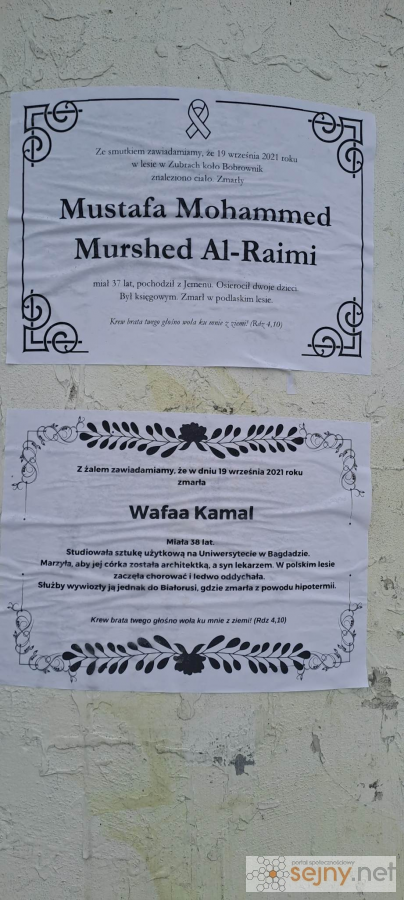 Ze smutkiem zawiadamiamy, że 19 września 2021 roku
w lesie w Zubrach koło Bobrownik
znaleziono ciało. Zmarły
Mustafa Mohammed
Murshed Al-Raimi
miał 37 lat, pochodził z Jemenu. Osierocił dwoje dzieci.
Był księgowym. Zmarł w podlaskim lesie.
Krew brata twego głośno woła ku mnie z ziemi! (Rdz 4,10)
Z żalem zawiadamiamy, że w dniu 19 września 2021 roku
zmarła
Wafaa Kamal
Miała 38 lat.
Studiowała sztukę użytkową na Uniwersytecie w Bagdadzie.
Marzyła, aby jej córka została architektką, a syn lekarzem. W polskim lesie
zaczęła chorować i ledwo oddychała.
Służby wywiozły ją jednak do Białorusi, gdzie zmarła z powodu hipotermii.
Krew brata twego głośno woła ku mnie z ziemi! (Rdz 4,10)
portal społecznościowy
sejny.net